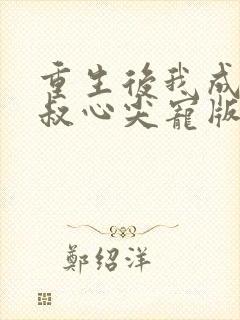 重生後我成
叔心尖寵版
鄭绍洋